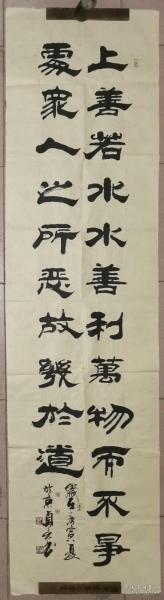 上善若水水善利萬物而不爭
處眾人之所惡故幾於道
歲在庚寅夏